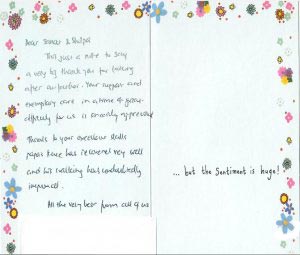 Dear
This just a note to say
a very big thank you for looking
after our father. Your support and
exemplary care in a time of great
difficulty for us is sincerely appreciated
Thanks to your excellent skills
papas knee has recovered very well
and his walking has undoubtedly
improved.
All the very best from all of us
... but the Sentiment is huge!